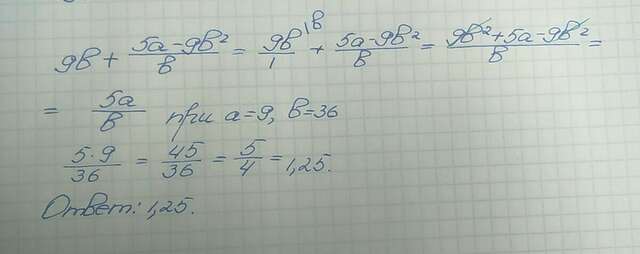 9b + \frac{5a-9b^2}{b} = \frac{9b}{1}^{\backslash b} + \frac{5a-9b^2}{b} = \frac{9b^2+5a-9b^2}{b} =
= \frac{5a}{b} при a=9, b=36
\frac{5 \cdot 9}{36} = \frac{45}{36} = \frac{5}{4} = 1,25.
Ответ: 1,25.